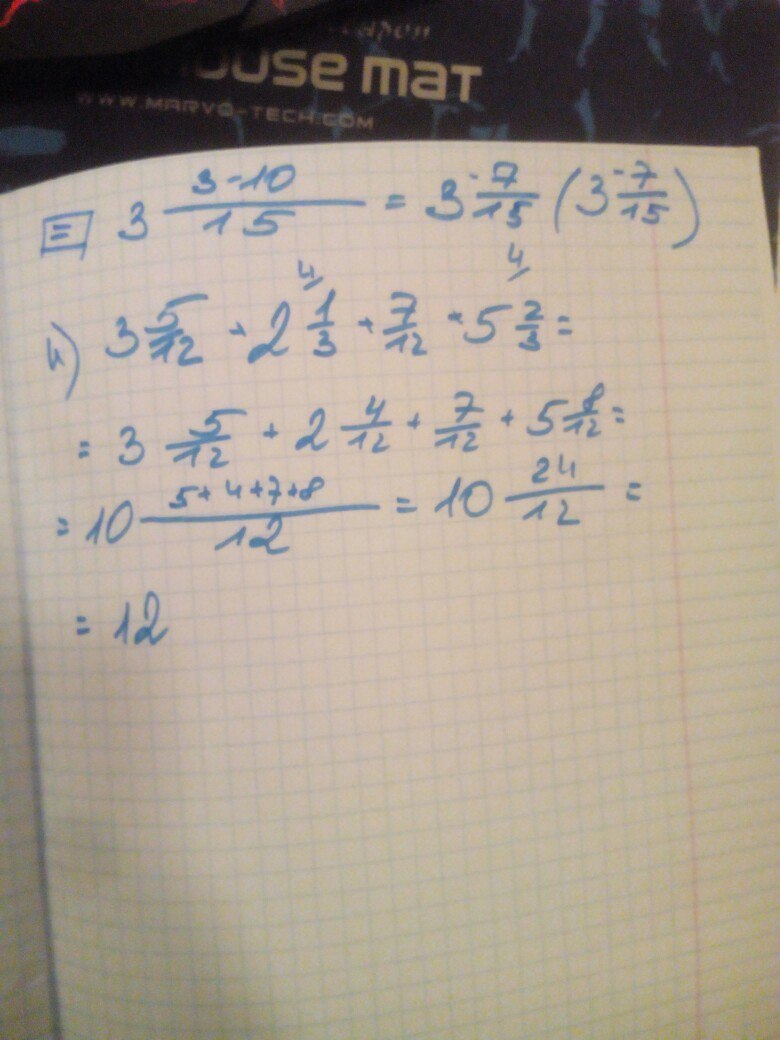 mouse mat
WWW.MARVO-TECH.COM
= 3 (3-10)/15 = 3 -7/15 (3 -7/15)
4 4
и) 3 5/12 + 2 1/3 + 7/12 + 5 2/3 =
= 3 5/12 + 2 4/12 + 7/12 + 5 8/12 =
= 10 (5+4+7+8)/12 = 10 24/12 =
= 12